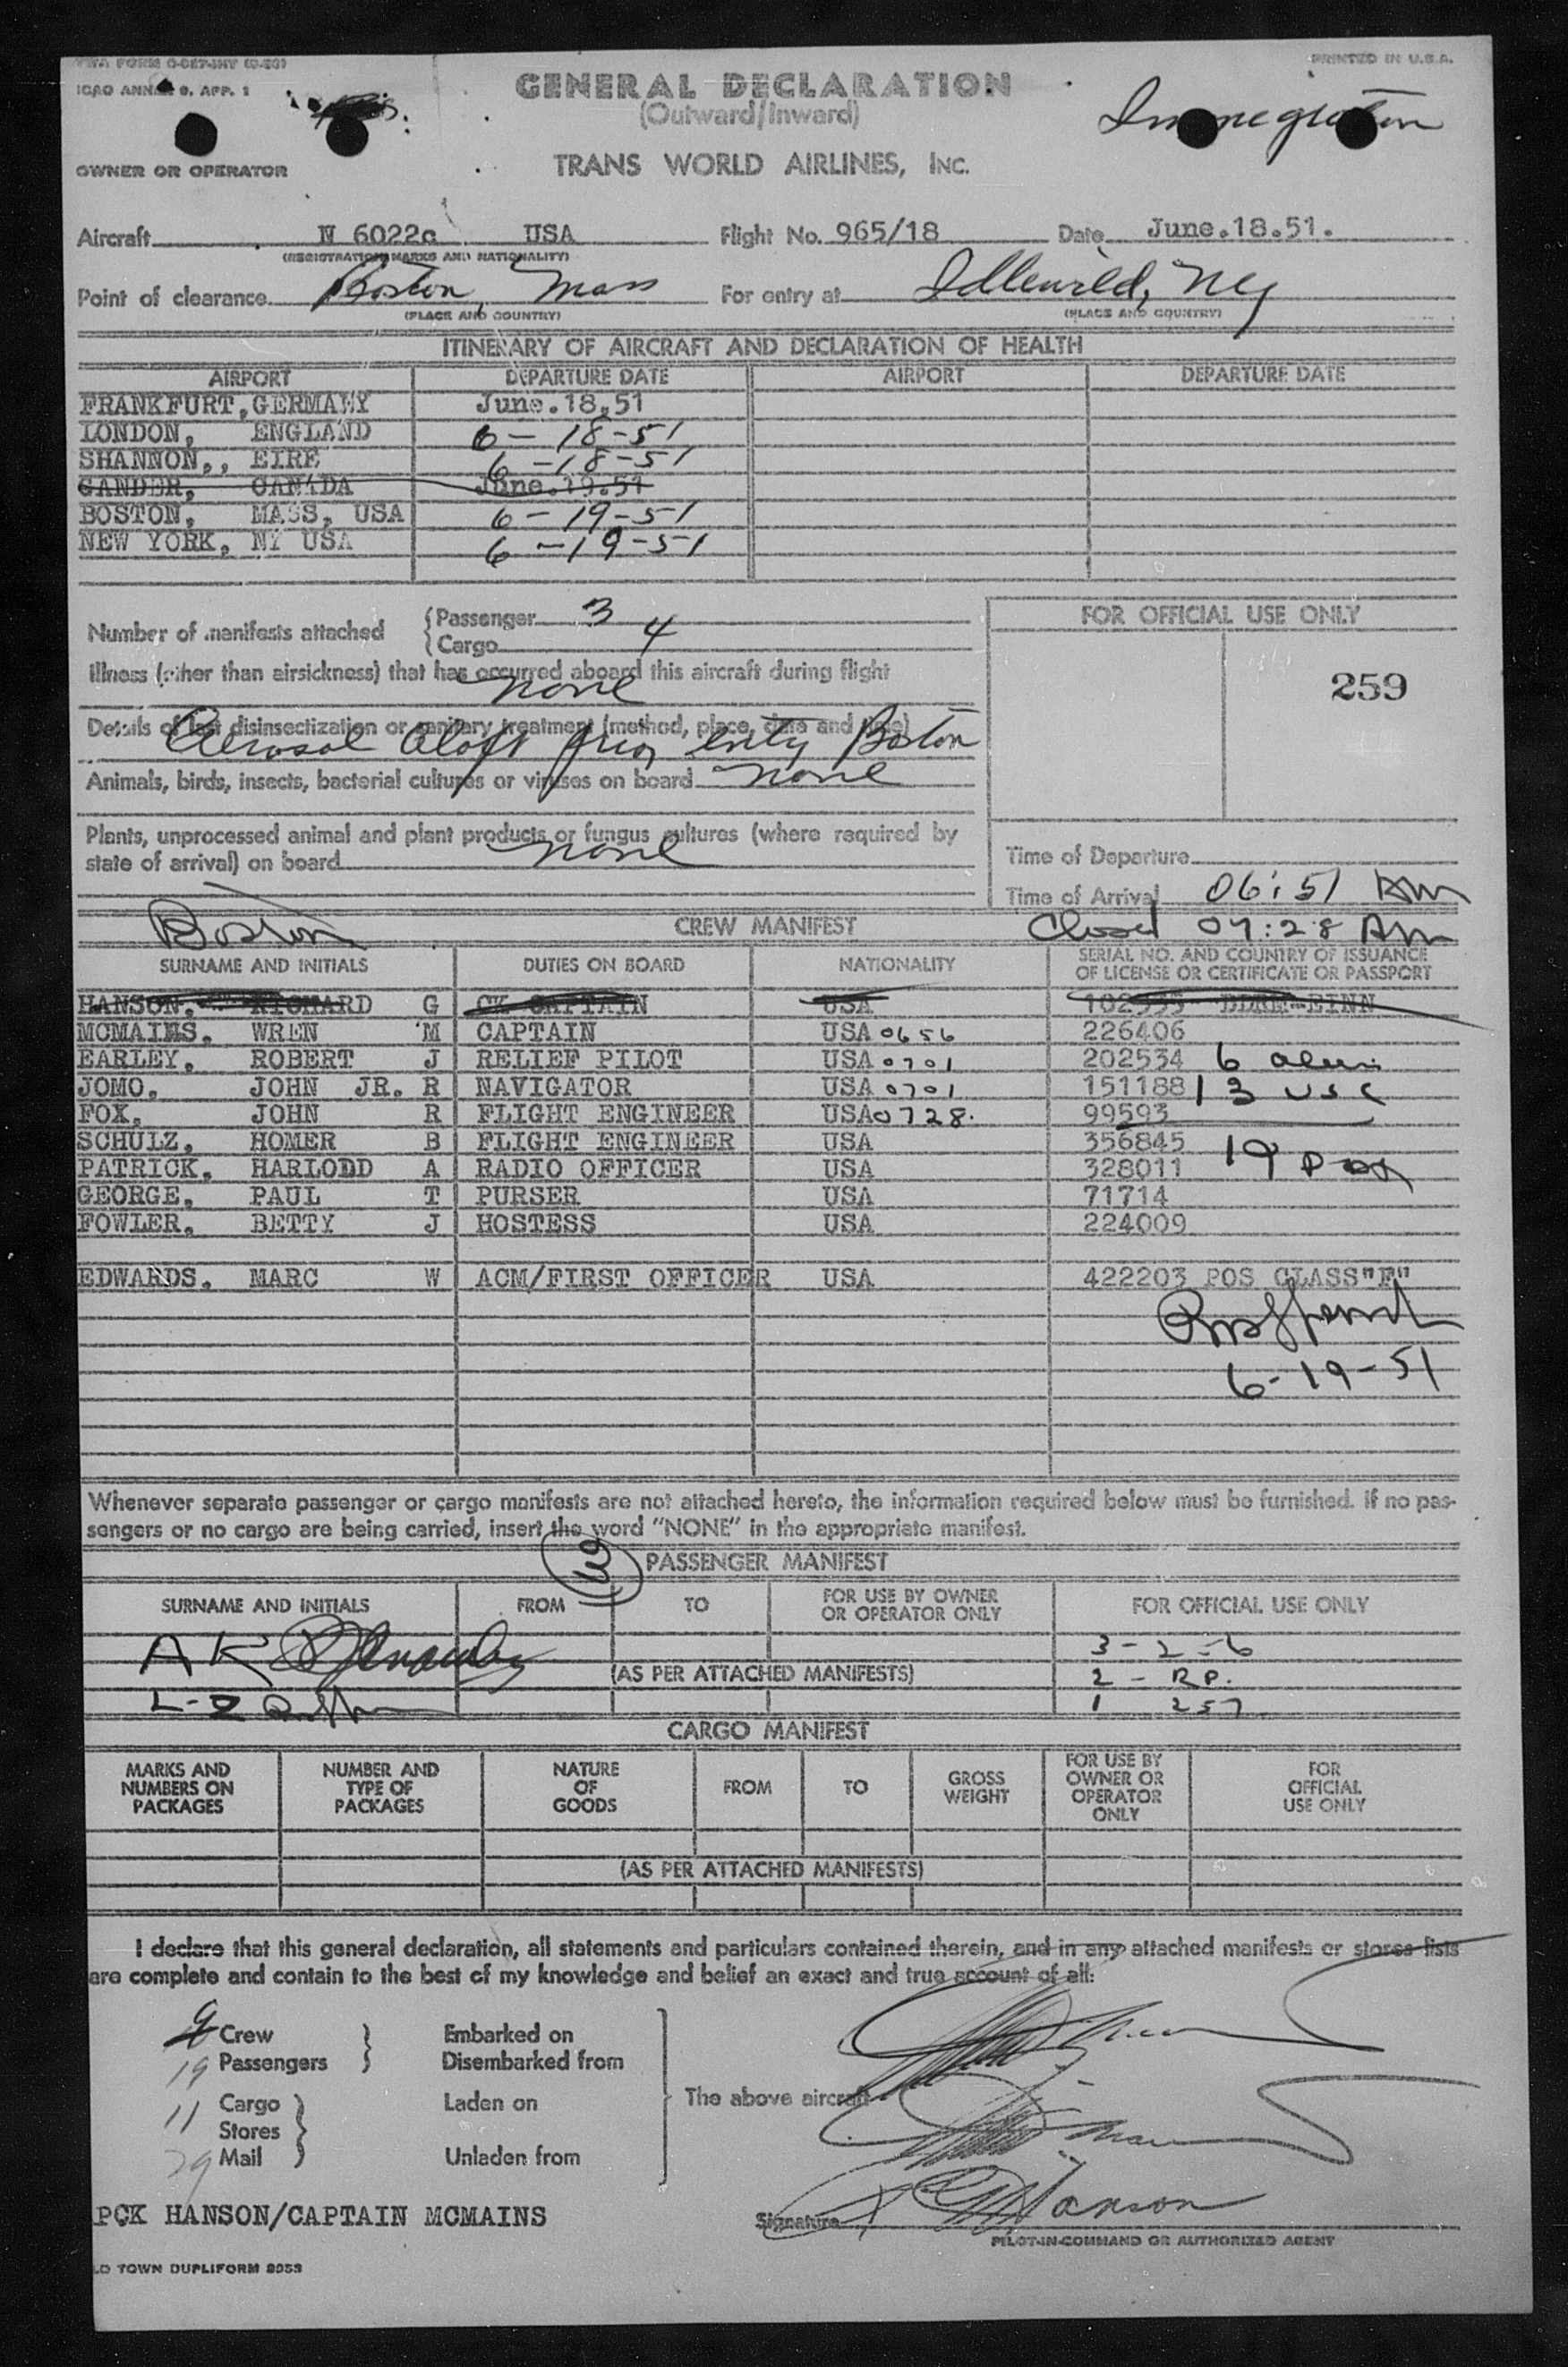 TWA FORM
PRINTED IN U.S.A.
ICAO ANNEX 9, APP. 1
GENERAL DECLARATION
(Outward/Inward)
Immegration
OWNER OR OPERATOR
TRANS WORLD AIRLINES, INC.
Aircraft N 6022c USA Flight No. 965/18 Date June.18.51.
(REGISTRATION MARKS AND NATIONALITY)
Point of clearance Boston, Mass For entry at Idlewild, NY
(PLACE AND COUNTRY) (PLACE AND COUNTRY)
ITINERARY OF AIRCRAFT AND DECLARATION OF HEALTH
AIRPORT DEPARTURE DATE AIRPORT DEPARTURE DATE
FRANKFURT, GERMANY June.18.51
LONDON, ENGLAND 6-18-51
SHANNON,, EIRE 6-18-51
GANDER, CANADA June.19.51
BOSTON, MASS, USA 6-19-51
NEW YORK, NY USA 6-19-51
Number of manifests attached
Passenger 3
Cargo 4
FOR OFFICIAL USE ONLY
259
Illness (other than airsickness) that has occurred aboard this aircraft during flight
none
Details of last disinsectization or sanitary treatment (method, place, date and time)
Aerosol Aloft prior entry Boston
Animals, birds, insects, bacterial cultures or viruses on board none
Plants, unprocessed animal and plant products or fungus cultures (where required by
state of arrival) on board none
Time of Departure
Time of Arrival 06:51 AM
Boston CREW MANIFEST Closed 07:28 AM
SURNAME AND INITIALS DUTIES ON BOARD NATIONALITY SERIAL NO. AND COUNTRY OF ISSUANCE
OF LICENSE OR CERTIFICATE OR PASSPORT
HANSON, RICHARD G CK CAPTAIN USA
MCMAINS. WREN M CAPTAIN USA 0656 226406
EARLEY. ROBERT J RELIEF PILOT USA 0701 202534 6 alien
JOMO. JOHN JR. R NAVIGATOR USA 0701 151188 13 USC
FOX. JOHN R FLIGHT ENGINEER USA 0728. 99593
SCHULZ. HOMER B FLIGHT ENGINEER USA 356845
PATRICK. HARLODD A RADIO OFFICER USA 328011 19 pax
GEORGE. PAUL T PURSER USA 71714
FOWLER. BETTY J HOSTESS USA 224009
EDWARDS. MARC W ACM/FIRST OFFICER USA 422203 POS CLASS"F"
6-19-51
Whenever separate passenger or cargo manifests are not attached hereto, the information required below must be furnished. If no pas-
sengers or no cargo are being carried, insert the word "NONE" in the appropriate manifest.
PASSENGER MANIFEST
SURNAME AND INITIALS FROM TO FOR USE BY OWNER
OR OPERATOR ONLY FOR OFFICIAL USE ONLY
3-2-6
(AS PER ATTACHED MANIFESTS) 2 - RP.
1 257
CARGO MANIFEST
MARKS AND
NUMBERS ON
PACKAGES
NUMBER AND
TYPE OF
PACKAGES
NATURE
OF
GOODS
FROM
TO
GROSS
WEIGHT
FOR USE BY
OWNER OR
OPERATOR
ONLY
FOR
OFFICIAL
USE ONLY
(AS PER ATTACHED MANIFESTS)
I declare that this general declaration, all statements and particulars contained therein, and in any attached manifests or stores lists
are complete and contain to the best of my knowledge and belief an exact and true account of all:
9 Crew Embarked on
19 Passengers Disembarked from
The above aircraft
11 Cargo Laden on
Stores
29 Mail Unladen from
PCK HANSON/CAPTAIN MCMAINS
Signature RG Hanson
PILOT-IN-COMMAND OR AUTHORIZED AGENT
LD TOWN DUPLIFORM 8053